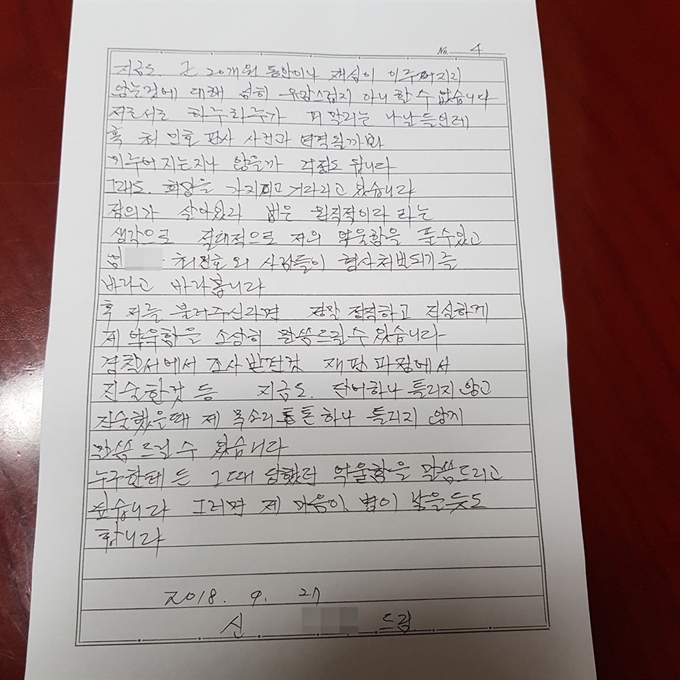 No. 4
지금도 근 20개월 동안이나 재심이 이루어지지
않는것에 대해 심히 유감스럽지 아니 할 수 없습니다
저로서는 하루하루가 피말리는 나날들인데
혹 최민호 판사 사건과 연결될까봐
이루어지는지나 않을까 걱정도 됩니다
그래도 희망을 가지고 기다리고 있습니다
정의가 살아있고 법은 원칙적이라 라는
생각으로 절대적으로 저의 억울함을 풀수있고
최민호 외 사람들이 형사처벌되기를
바라고 바라봅니다
혹 저를 불러주신다면 정말 정직하고 진실하게
제 억울함을 소상히 말씀드릴수 있습니다
경찰서에서 조사받던것 재판과정에서
진술한것 등 지금도 단어하나 틀리지 않고
진술했을때 제 목소리 톤 하나 틀리지 않게
말씀 드릴 수 있습니다
누구한테 든 그때 당했던 억울함을 말씀드리고
싶습니다 그러면 제 마음이 병이 낳을듯도
합니다
2018. 9. 27
신 드림